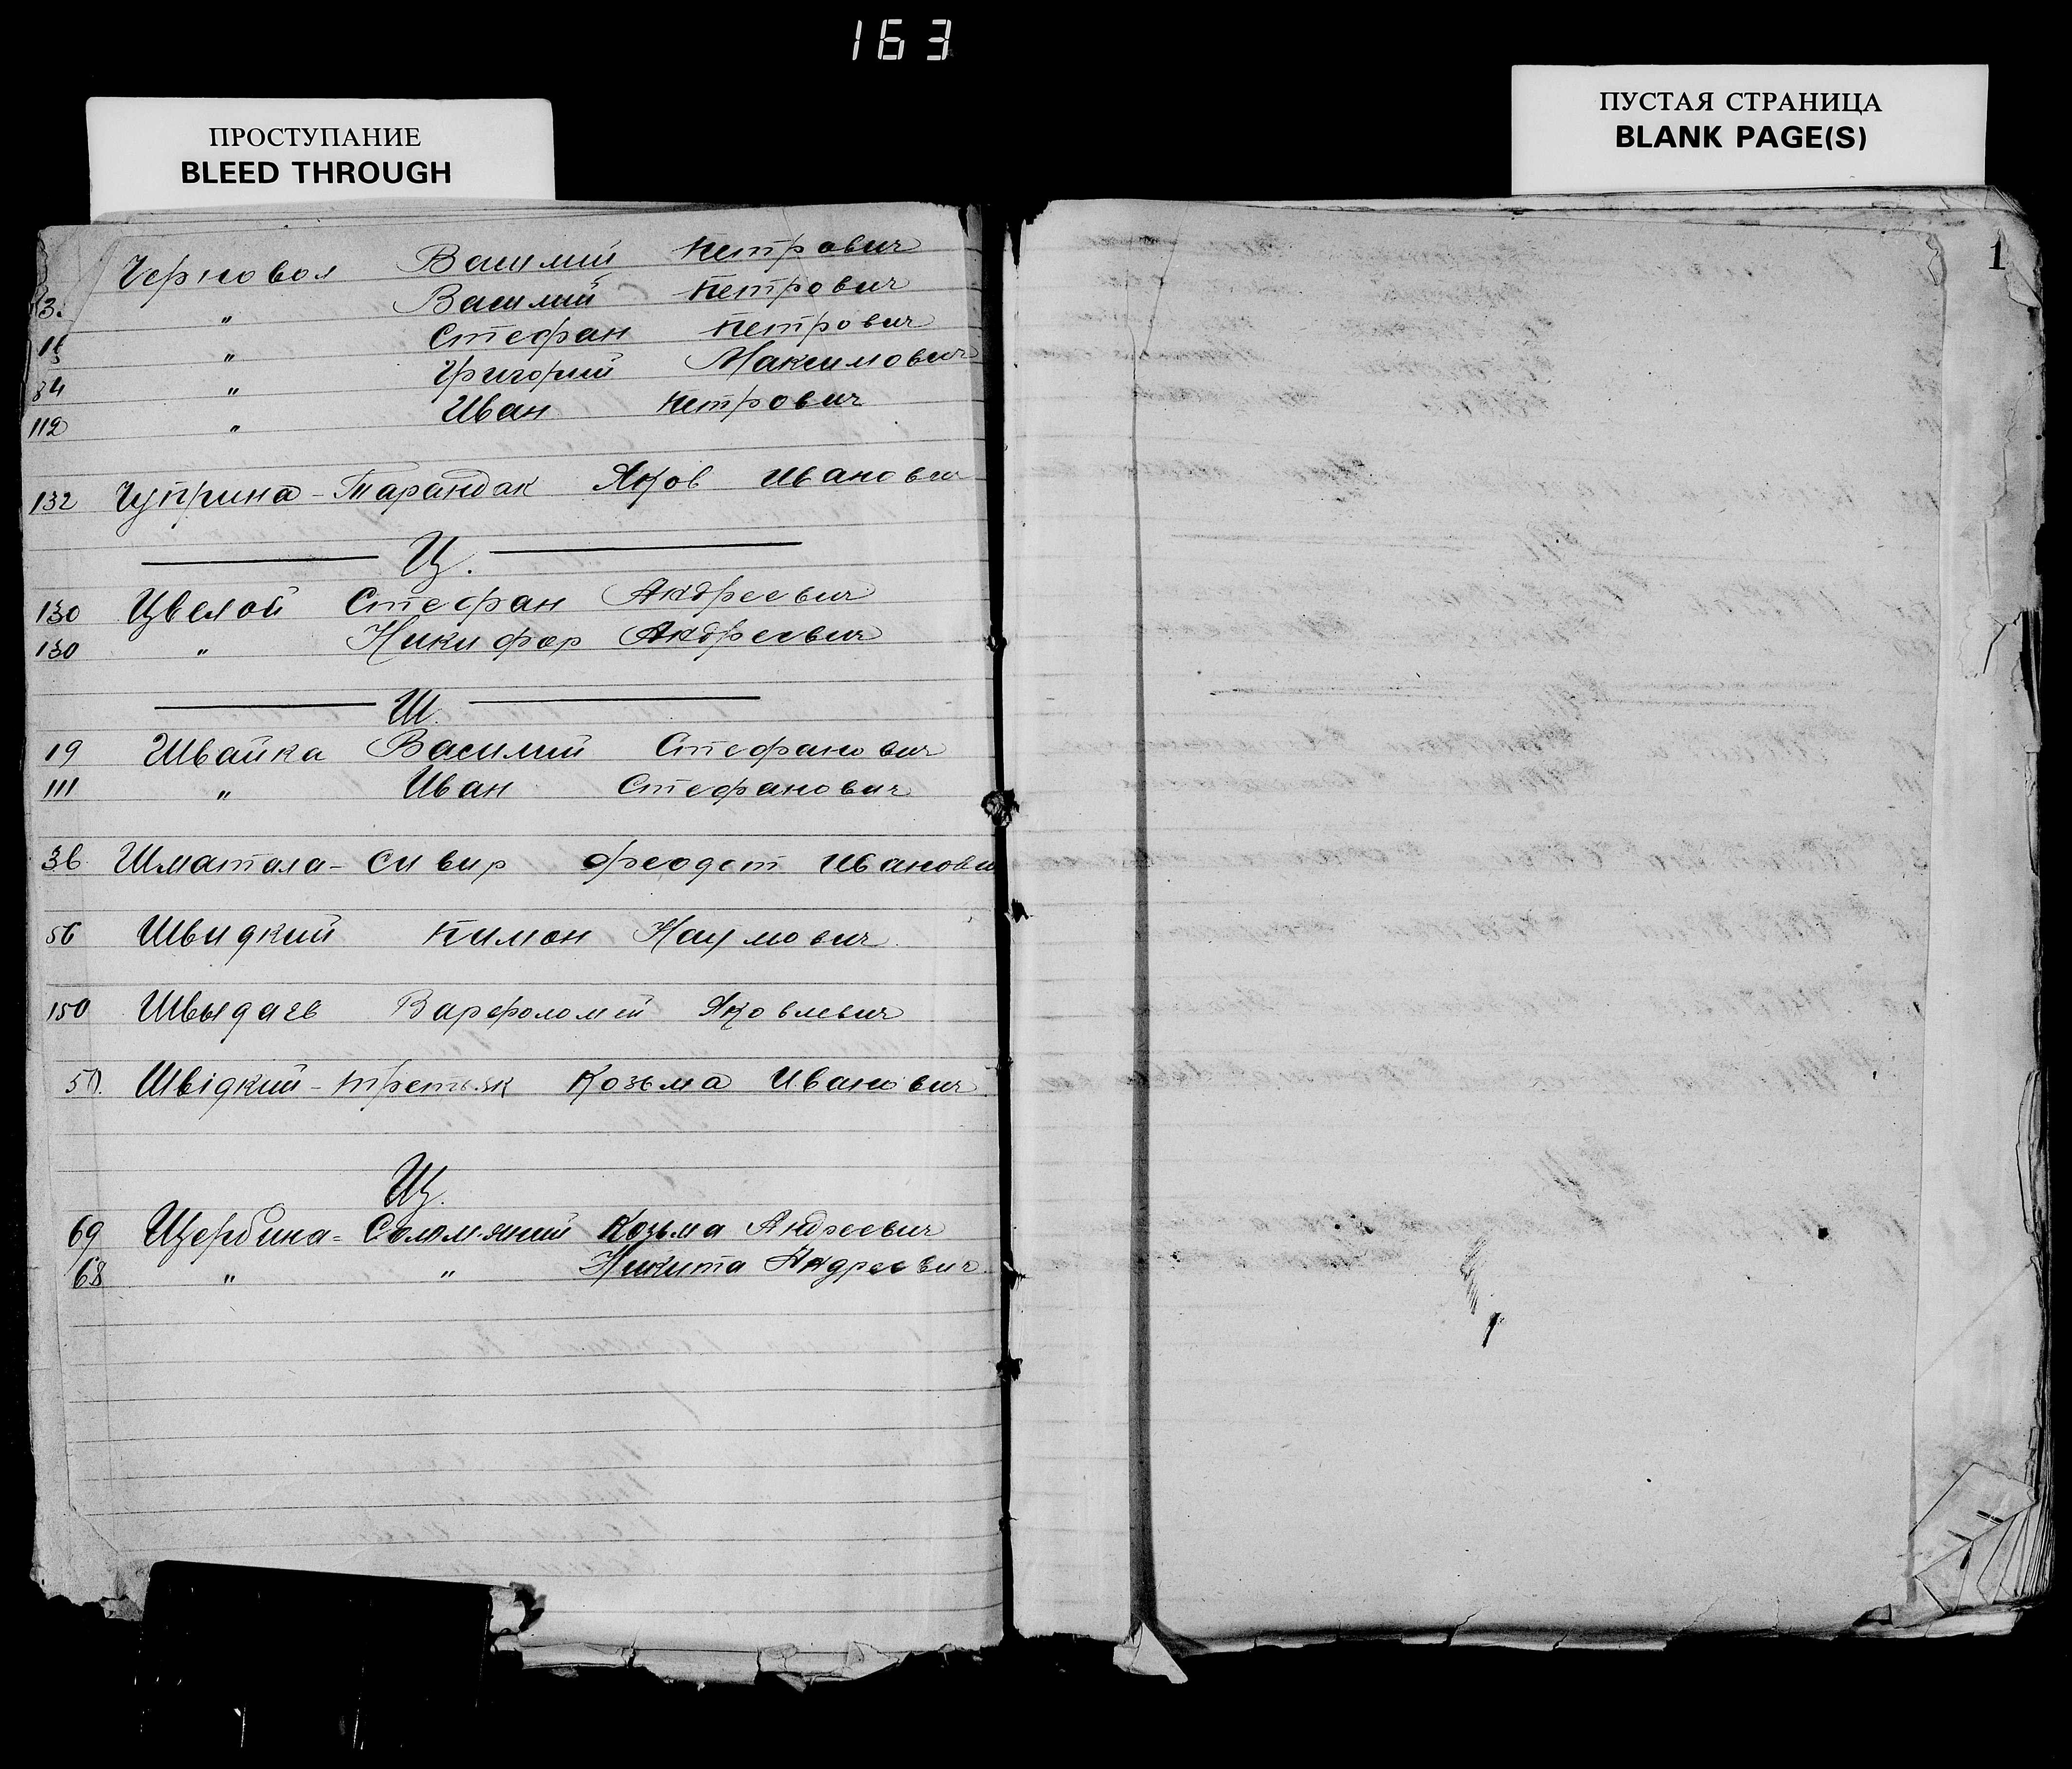 163
ПРОСТУПАНИЕ
BLEED THROUGH
ПУСТАЯ СТРАНИЦА
BLANK PAGE(S)
1
Черновол Василий Петрович
13. " Василий Петрович
" Стефан Петрович
84 " Григорий Максимович
112 " Иван Петрович
132 Чуприна - Тарандак Яков Иванович
Ц.
130 Цвелой Стефан Андреевич
130 " Никифор Андреевич
Ш.
19 Швайка Василий Стефанович
111 " Иван Стефанович
36 Шматала - Сивир Феодот Иванови
56 Швидкий Пимон Наумович
150 Варфоломей Яковлевич
50. Швідкий - Третьяк Козьма Иванович
Щ.
69 Щербина - Соломяний Козьма Андреевич
68 " " Никита Андреевич